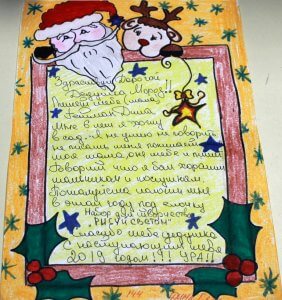 Здраствуй Дорогой
Дедушка Мороз!!
Пишет тебе (мама)
Дина
Мне 4 лет я хожу
в сад. Я не умею не говорить
не писать меня понимает
моя мама, она тебе и пишет
Говорит что я был хорошим
мальчиком и послушным
Пожалуйста положи мне
в этом году под ёлочку
Набор для творчества
"РИСУЙ СВЕТОМ"
Спасибо тебе дедушка
С наступающим тебя
2019 годом!!! УРА!!
144